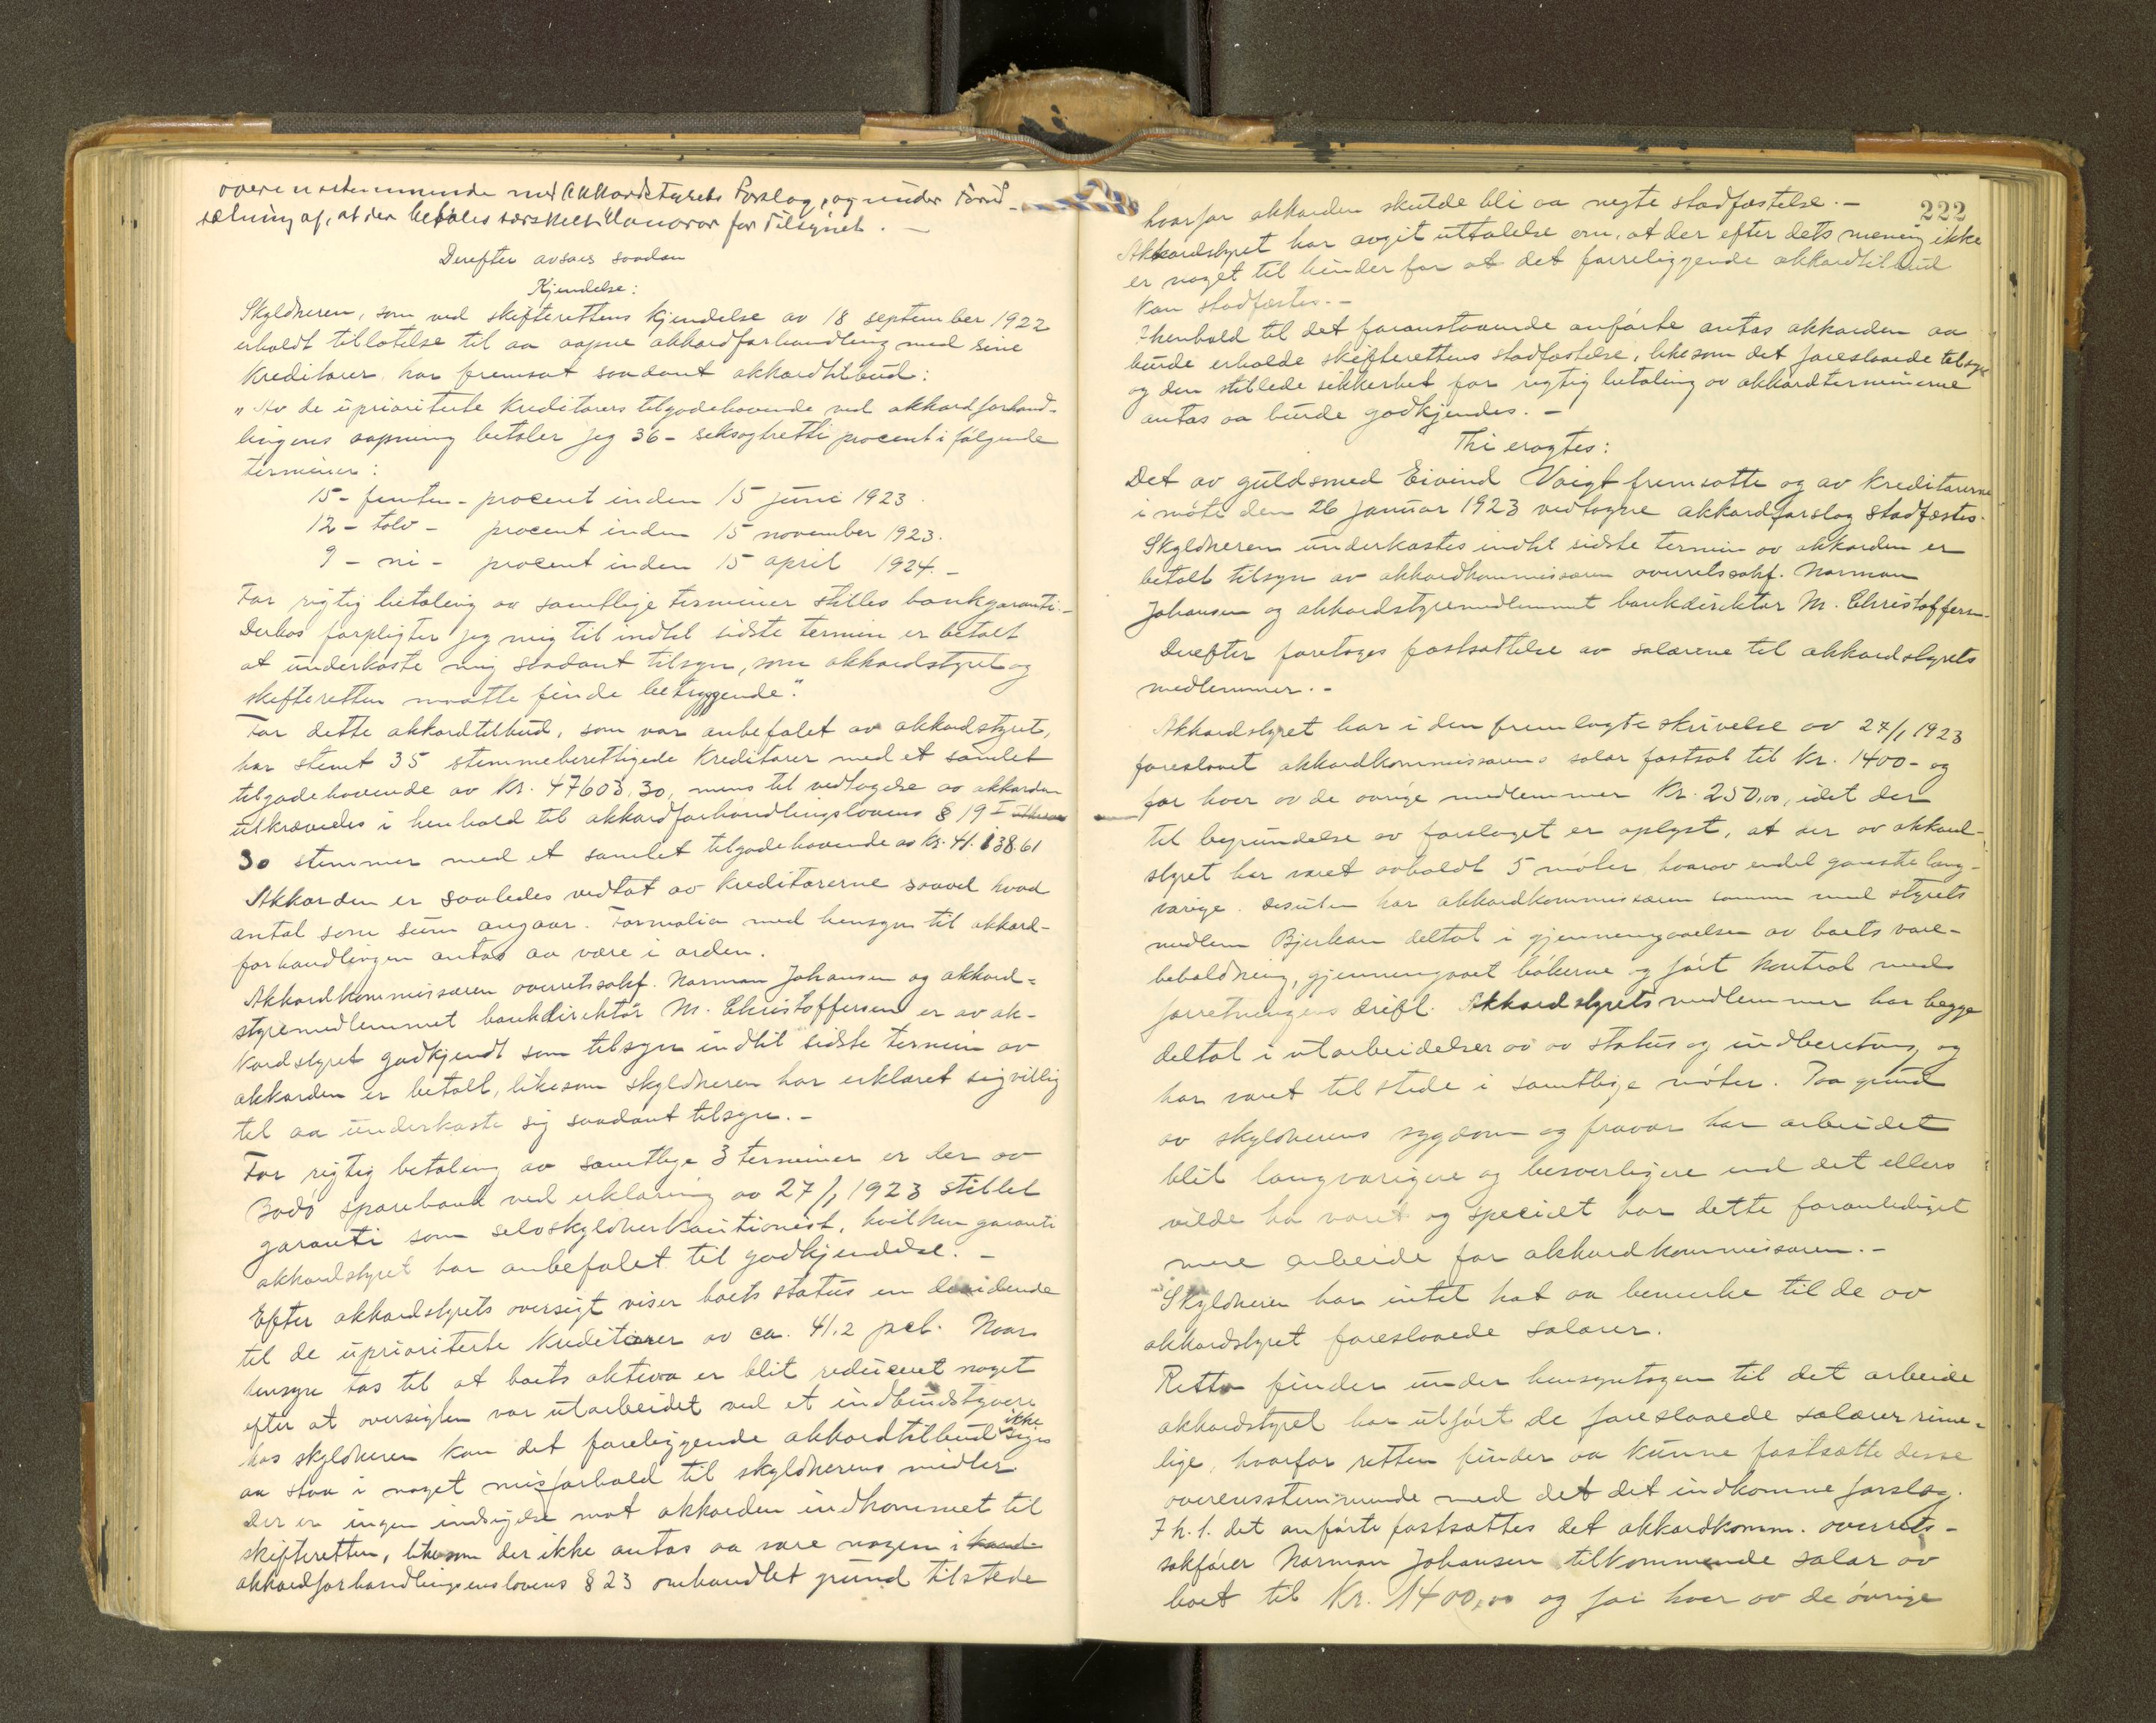 overensstemmende med Akkordstyrets Forslag, og under Forud-
sætning af, at der betales særskilt Honorar for Tilsynet. -
Derefter avsaes saadan
Kjendelse:
Skyldneren, som ved skifterettens kjendelse av 18 september 1922
erholdt tillatelse til aa aapne akkordforhandling med sine
kreditorer har fremsat saadant akkordtilbud:
"Av de uprioriterte kreditorers tilgodehavende ved akkordforhand-
lingens aapning betaler jeg 36 - seksogtretti procent i følgende
terminer:
15 - femten - procent inden 15 juni 1923.
12 - tolv - procent inden 15 november 1923.
9 - ni - procent inden 15 april 1924. -
For rigtig betaling av samtlige terminer stilles bankgaranti. -
Derhos forpligter jeg mig til indtil sidste termin er betalt
at underkaste mig saadant tilsyn, som akkordstyret og
skifteretten maatte finde betryggende".
For dette akkordtilbud, som var anbefalet av akkordstyret,
har stemt 35 stemmeberettigede kreditorer med et samlet
tilgodehavende av kr. 47603,30, mens til vedtagelse av akkorden
utkrævedes i henhold til akkordforhandlingslovens § 19 I
30 stemmer med et samlet tilgodehavende av kr. 41.138.61
Akkorden er saaledes vedtat av kreditorerne saavel hvad
antal som sum angaar. Formalia med hensyn til akkord-
forhandlingen antas aa være i orden.
Akkordkommissæren overretssakf. Norman Johansen og akkord-
styremedlemmet bankdirektør M. Christoffersen er av ak-
kordstyret godkjendt som tilsyn indtil sidste termin av
akkorden er betalt, likesom skyldneren har erklæret sig villig
til aa underkaste sig saadant tilsyn. -
For rigtig betaling av samtlige 3 terminer er der av
Bodø sparebank ved erklæring av 27/1 1923 stillet
garanti som selvskyldnerkautionist, hvilken garanti
akkordstyret har anbefalet til godkjendelse. -
Efter akkordstyrets oversigt viser boets status en dividende
til de uprioriterte kreditorer av ca. 41,2 pct. Naar
hensyn tas til at boets aktiva er blit reduceret noget
efter at oversigten var utarbeidet ved et indbrudstyveri
hos skyldneren kan det foreliggende akkordtilbud ikke siges
aa staa i noget misforhold til skyldnerens midler
Der er ingen indsigelse mot akkorden indkommet til
skifteretten, likesom der ikke antas aa være nogen i
akkordforhandlingenslovens § 23 omhandlet grund tilstede
222
hvorfor akkorden skulde bli aa negte stadfæstelse. -
Akkordstyret har avgit uttalelse om, at der efter dets mening ikke
er noget til hinder for at det foreliggende akkordtilbud
kan stadfæstes. -
I henhold til det foranstaaende anførte antas akkorden aa
burde erholde skifterettens stadfæstelse, likesom det foreslaaede tilsyn
og den stillede sikkerhet for rigtig betaling av akkordterminerne
antas aa burde godkjendes. -
Thi eragtes:
Det av guldsmed Eivind Voigt fremsatte og av kreditorerne
i møte den 26 januar 1923 vedtagne akkordforslag stadfæstes.
Skyldneren underkastes indtil sidste termin av akkorden er
betalt tilsyn av akkordkommissæren overretssakf. Norman
Johansen og akkordstyremedlemmet bankdirektør M. Christoffersen.
Derefter foretages fastsættelse av salærene til akkordstyrets
medlemmer. -
Akkordstyret har i den fremlagte skrivelse av 27/1 1923
foreslaaet akkordkommissærens salær fastsat til kr. 1400 - og
for hver av de øvrige medlemmer kr. 250,00, idet der
til begrundelse av forslaget er oplyst, at der av akkord-
styret har været avholdt 5 møter, hvorav endel ganske lang-
varige. Desuten har akkordkommissæren sammen med styrets
medlem Bjerkan deltat i gjennemgaaelsen av boets vare-
beholdning, gjennemgaaet bøkerne og ført kontrol med
forretningens drift. Akkordstyrets medlemmer har begge
deltat i utarbeidelsen av av status og indberetning og
har været tilstede i samtlige møter. Paa grund
av skyldnerens sygdom og fravær har arbeidet
blit langvarigere og besværligere end det ellers
vilde ha været og specielt har dette foranlediget
mere arbeide for akkordkommissæren. -
Skyldneren har intet hat aa bemerke til de av
akkordstyret foreslaaede salærer.
Retten finder under hensyntagen til det arbeide
akkordstyret har utført de foreslaaede salærer rime-
lige, hvorfor retten finder aa kunne fastsætte desse
overensstemmende med det det indkomne forslag.
I h. t. det anførte fastsættes det akkordkomm. overrets-
sakfører Norman Johansen tilkommende salær av
boet til kr. 1400,00 og for hver av de øvrige